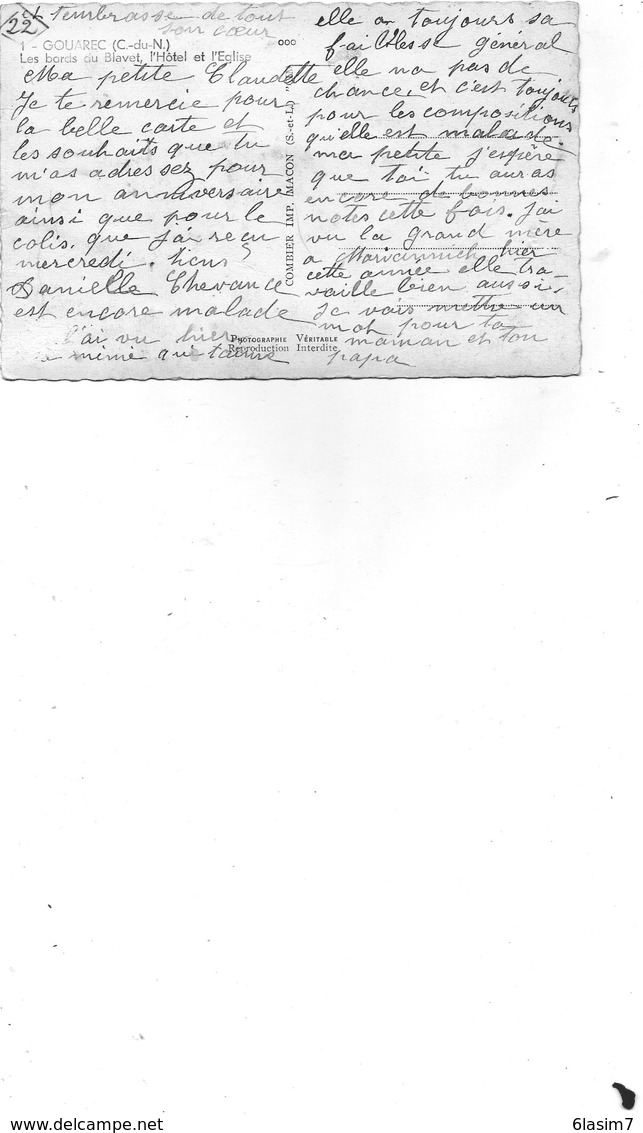 22
t'embrasse de tout
son cœur
1 - GOUAREC (C.-du-N.)
Les bords du Blavet, l'Hôtel et l'Eglise
Ma petite Claudette
Je te remercie pour
la belle carte et
les souhaits que tu
m'as adresez pour
mon anniversaire
ainsi que pour le
colis, que j'ai reçu
mercredi. tiens
Danielle Chevance
est encore malade
j'ai vu hier
mémé qui t'aime
COMBIER IMP. MACON (S.-et-L.)
PHOTOGRAPHIE VÉRITABLE
Reproduction Interdite
elle a toujours sa
faiblesse général
elle na pas de
chance, et c'est toujours
pour les compositions
qu'elle est malade.
ma petite j'espère
que toi tu auras
encore de bonnes
notes cette fois. j'ai
vu la grand mère
a hier
cette année elle tra-
vaille bien aussi.
je vais mettre un
mot pour ta
maman et ton
papa
6lasim7